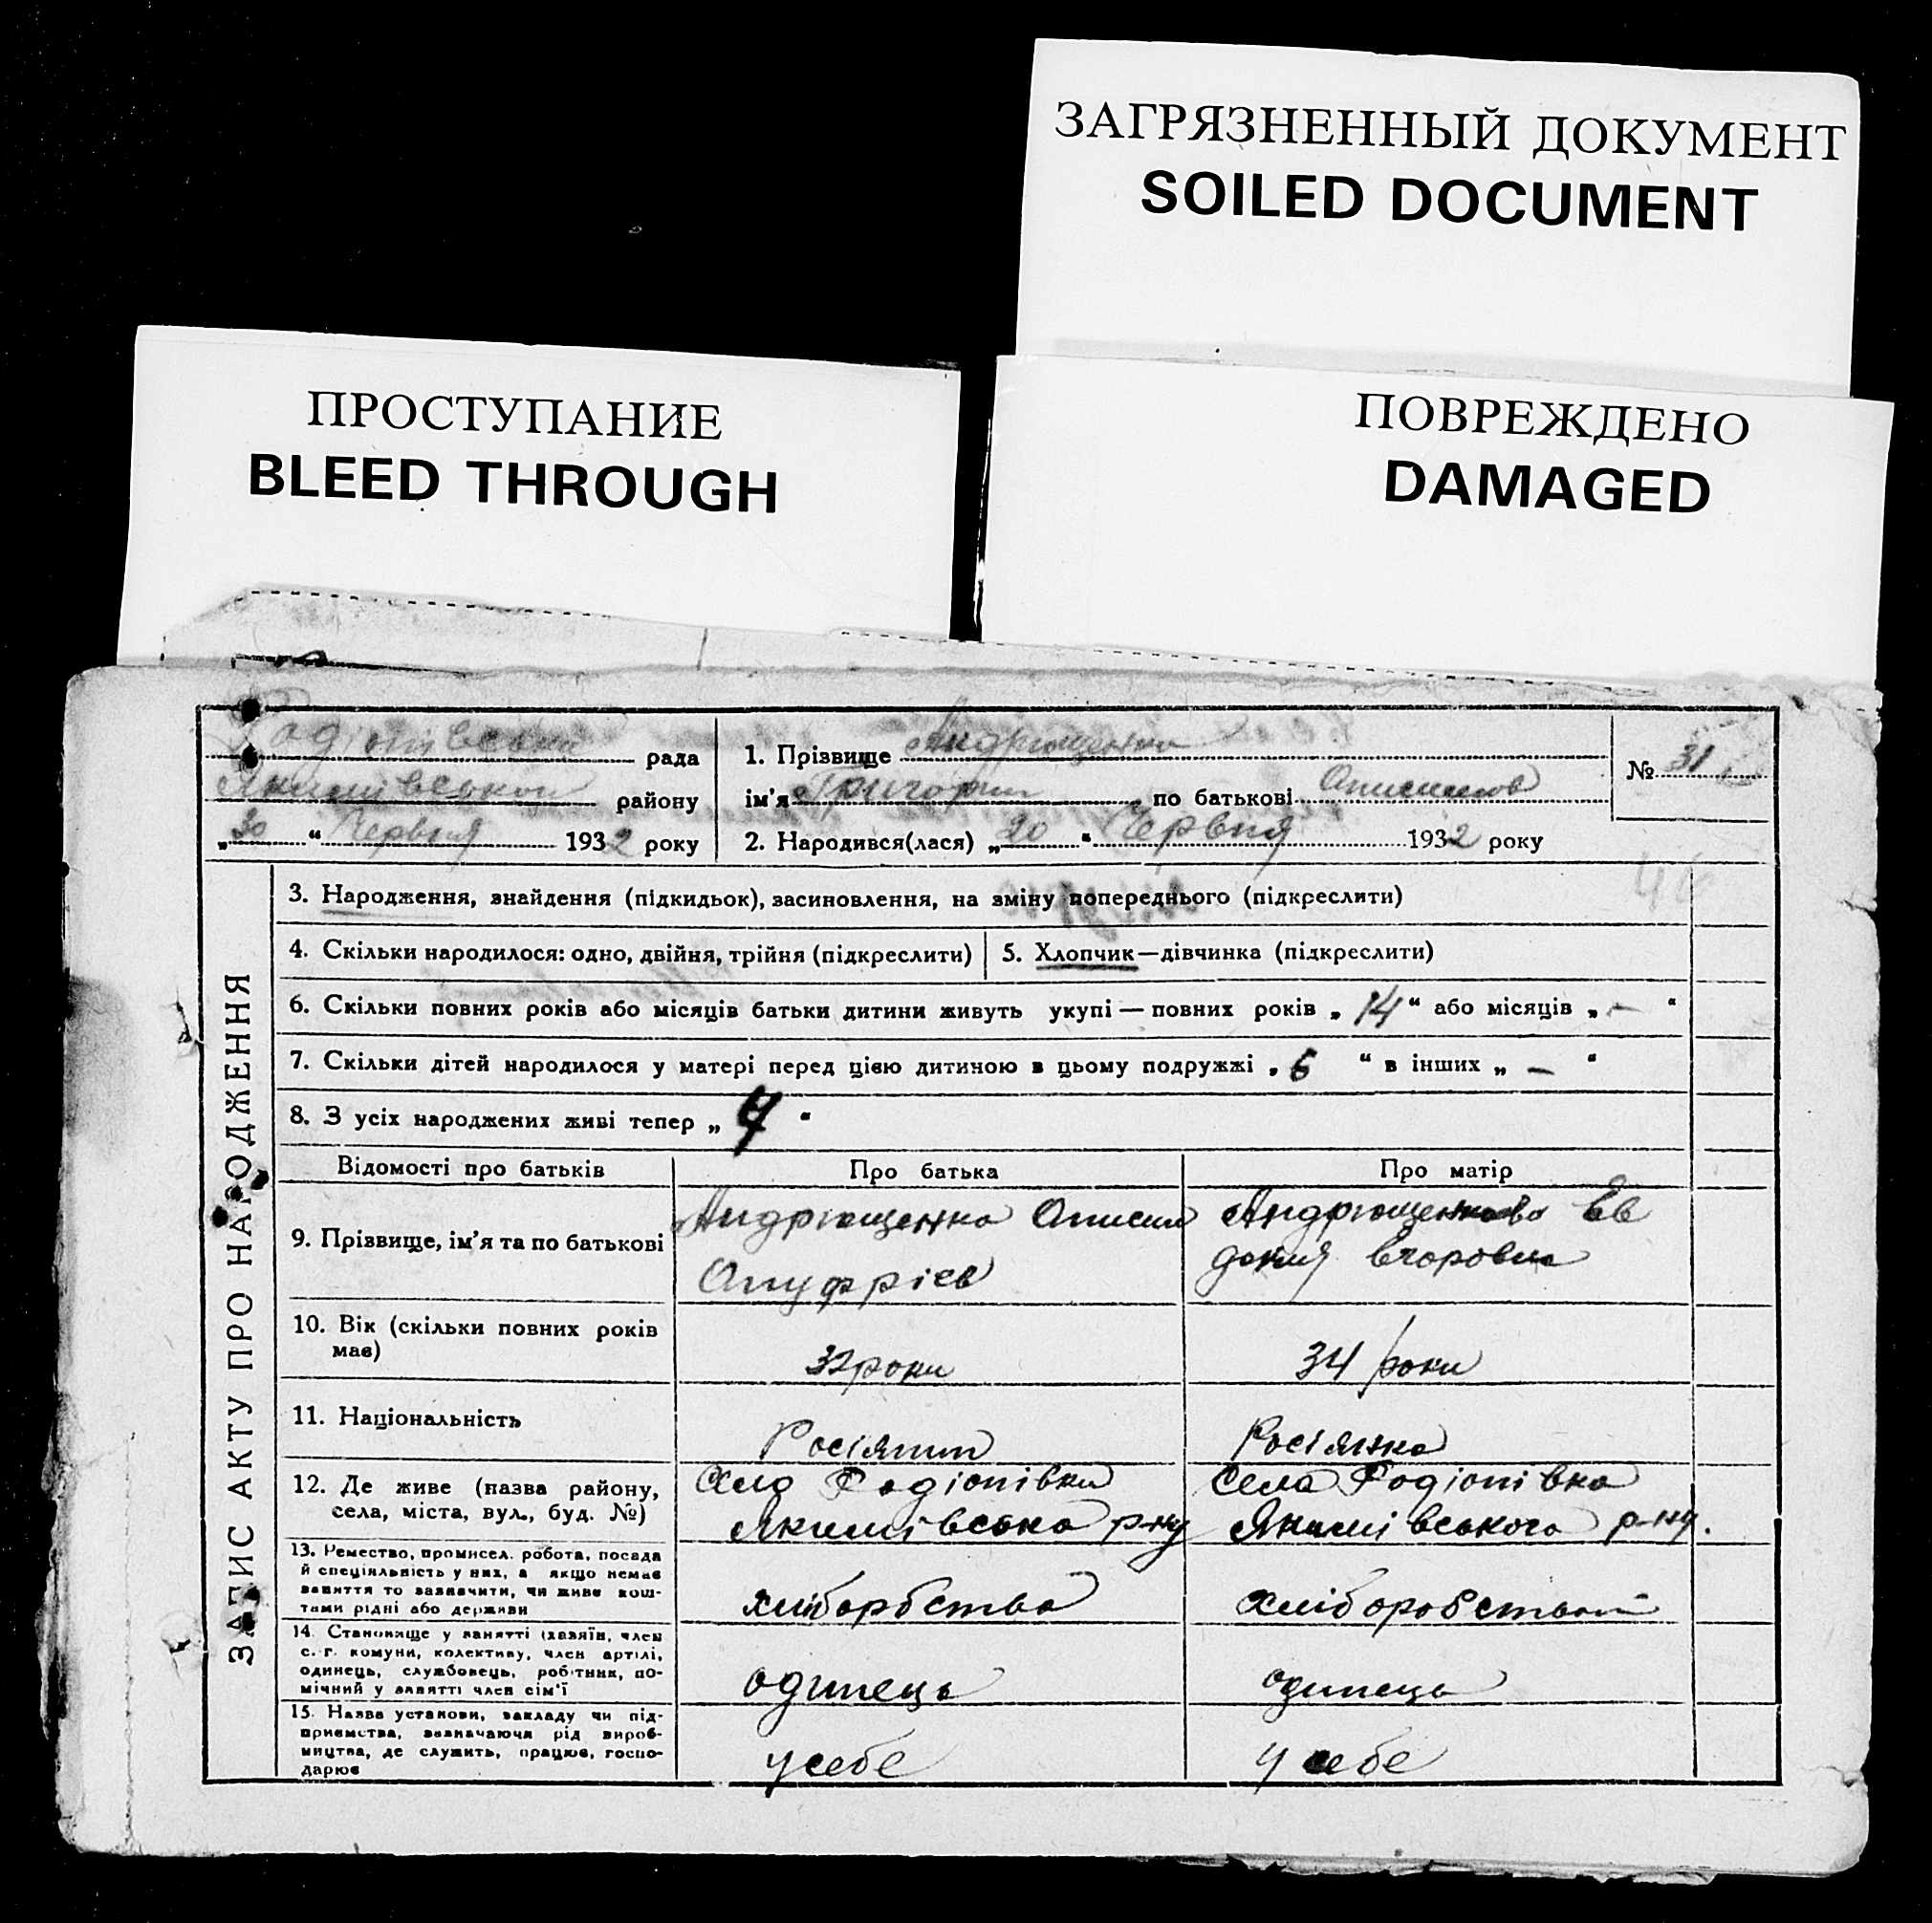 ЗАГРЯЗНЕННЫЙ ДОКУМЕНТ
SOILED DOCUMENT
ПРОСТУПАНИЕ
BLEED THROUGH
ПОВРЕЖДЕНО
DAMAGED
Родіонівська рада
Якимівського району
„30“ Червня 1932 року
1. Прізвище Андрющенко
ім'я Григорий по батькові Анисимов
2. Народився(лася) „20“ Червня 1932 року
№ 31
46
ЗАПИС АКТУ ПРО НАРОДЖЕННЯ
3. Народження, знайдення (підкидьок), засиновлення, на зміну попереднього (підкреслити)
4. Скільки народилося: одно, двійня, трійня (підкреслити)
5. Хлопчик—дівчинка (підкреслити)
6. Скільки повних років або місяців батьки дитини живуть укупі — повних років „14“ або місяців „—“
7. Скільки дітей народилося у матері перед цією дитиною в цьому подружжі „6“ в інших „—“
8. З усіх народжених живі тепер „4“
Відомості про батьків
Про батька
Про матір
9. Прізвище, ім'я та по батькові
Андрющенко Анисим
Ануфрієв
Андрющенкова Ев
докия Егоровна
10. Вік (скільки повних років
має)
32 роки
34 роки
11. Національність
Росіянин
Росіянка
12. Де живе (назва району,
села, міста, вул., буд. №)
Село Родіонівки
Якимівська р-ну
Села Родіонівка
Якимівського р-ну.
13. Ремество, промисел, робота, посада
й спеціяльність у них, а якщо немає
заняття то зазначити, чи живе кош-
тами рідні або держави
хліборбства
хліборобством
14. Становище у занятті (хазяїн, член
с.-г. комуни, колективу, член артілі,
одинець, службовець, робітник, по-
мічний у занятті член сім'ї
одинець
одинець
15. Назва установи, закладу чи під-
приємства, зазначаючи рід вироб-
ництва, де служить, працює, госпо-
дарює
у себе
у себе